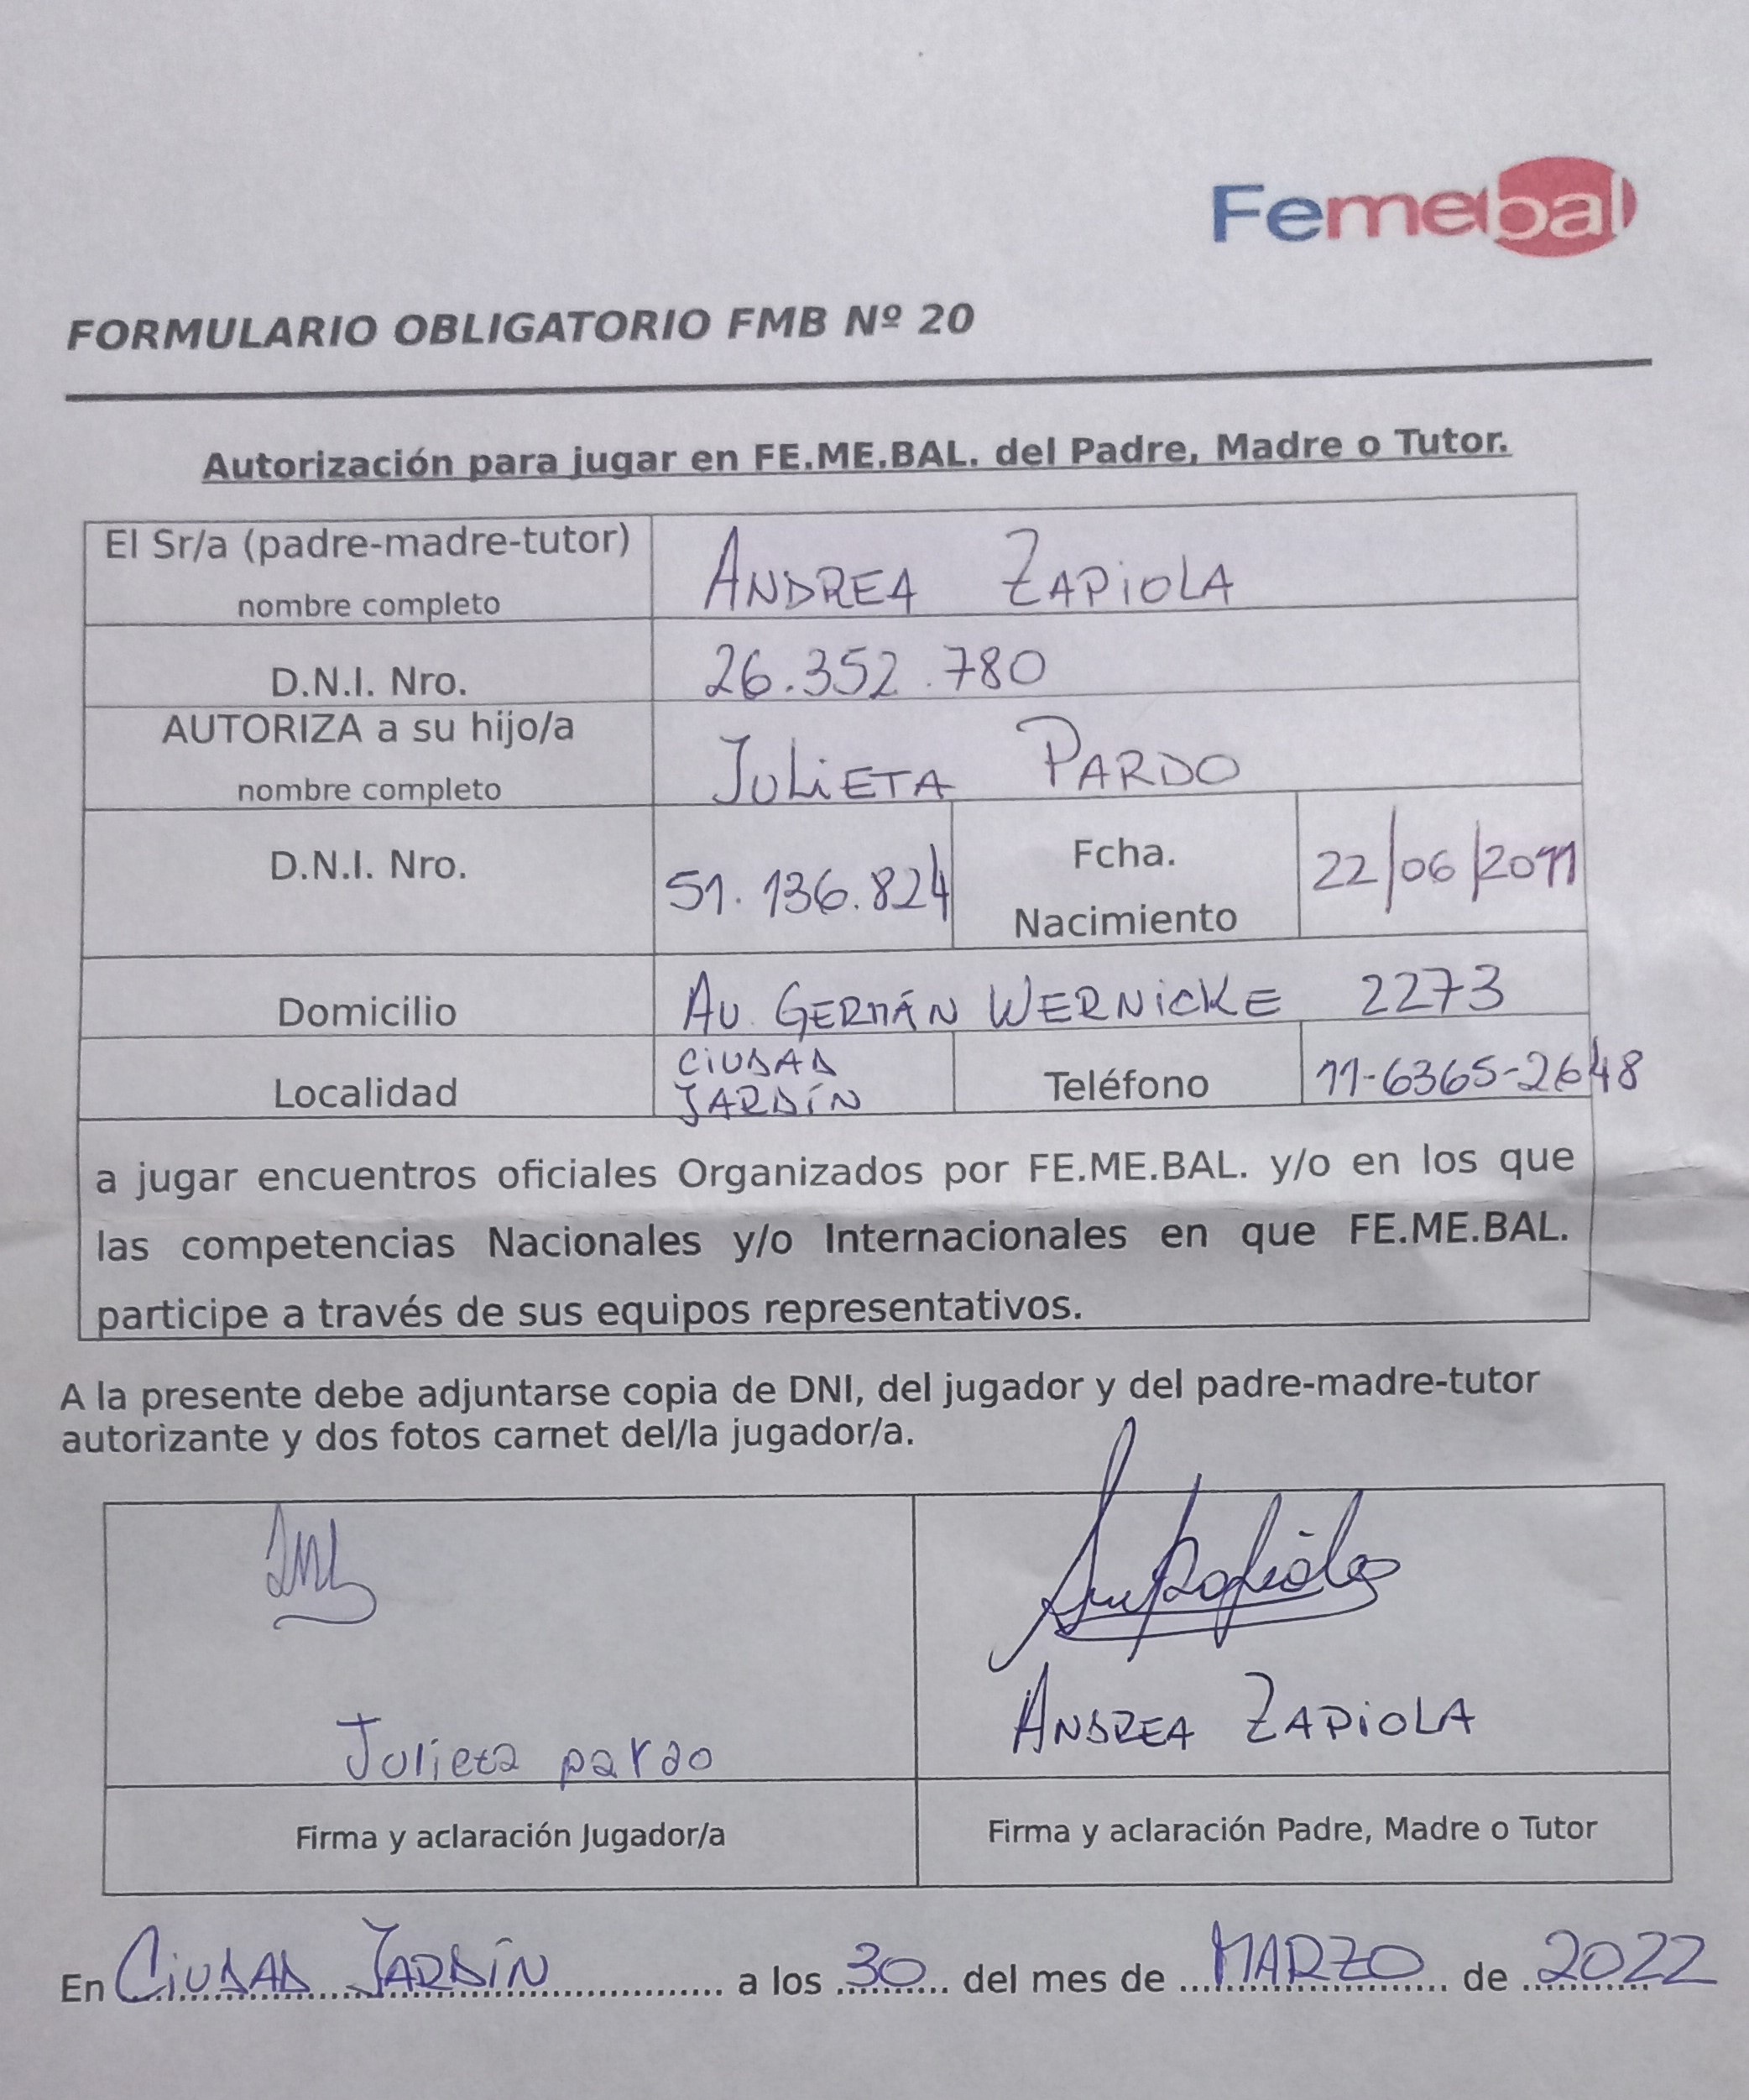 Femebal
FORMULARIO OBLIGATORIO FMB Nº 20
Autorización para jugar en FE.ME.BAL. del Padre, Madre o Tutor.
El Sr/a (padre-madre-tutor)
nombre completo
ANDREA ZAPIOLA
D.N.I. Nro.
26.352.780
AUTORIZA a su hijo/a
nombre completo
JULIETA PARDO
D.N.I. Nro.
51.136.824
Fcha.
Nacimiento
22/06/2011
Domicilio
AV. GERMÁN WERNICKE 2273
Localidad
CIUDAD
JARDÍN
Teléfono
11-6365-2648
a jugar encuentros oficiales Organizados por FE.ME.BAL. y/o en los que
las competencias Nacionales y/o Internacionales en que FE.ME.BAL.
participe a través de sus equipos representativos.
A la presente debe adjuntarse copia de DNI, del jugador y del padre-madre-tutor
autorizante y dos fotos carnet del/la jugador/a.
Julieta pardo
ANDREA ZAPIOLA
Firma y aclaración Jugador/a
Firma y aclaración Padre, Madre o Tutor
En CIUDAD JARDÍN a los 30 del mes de MARZO de 2022